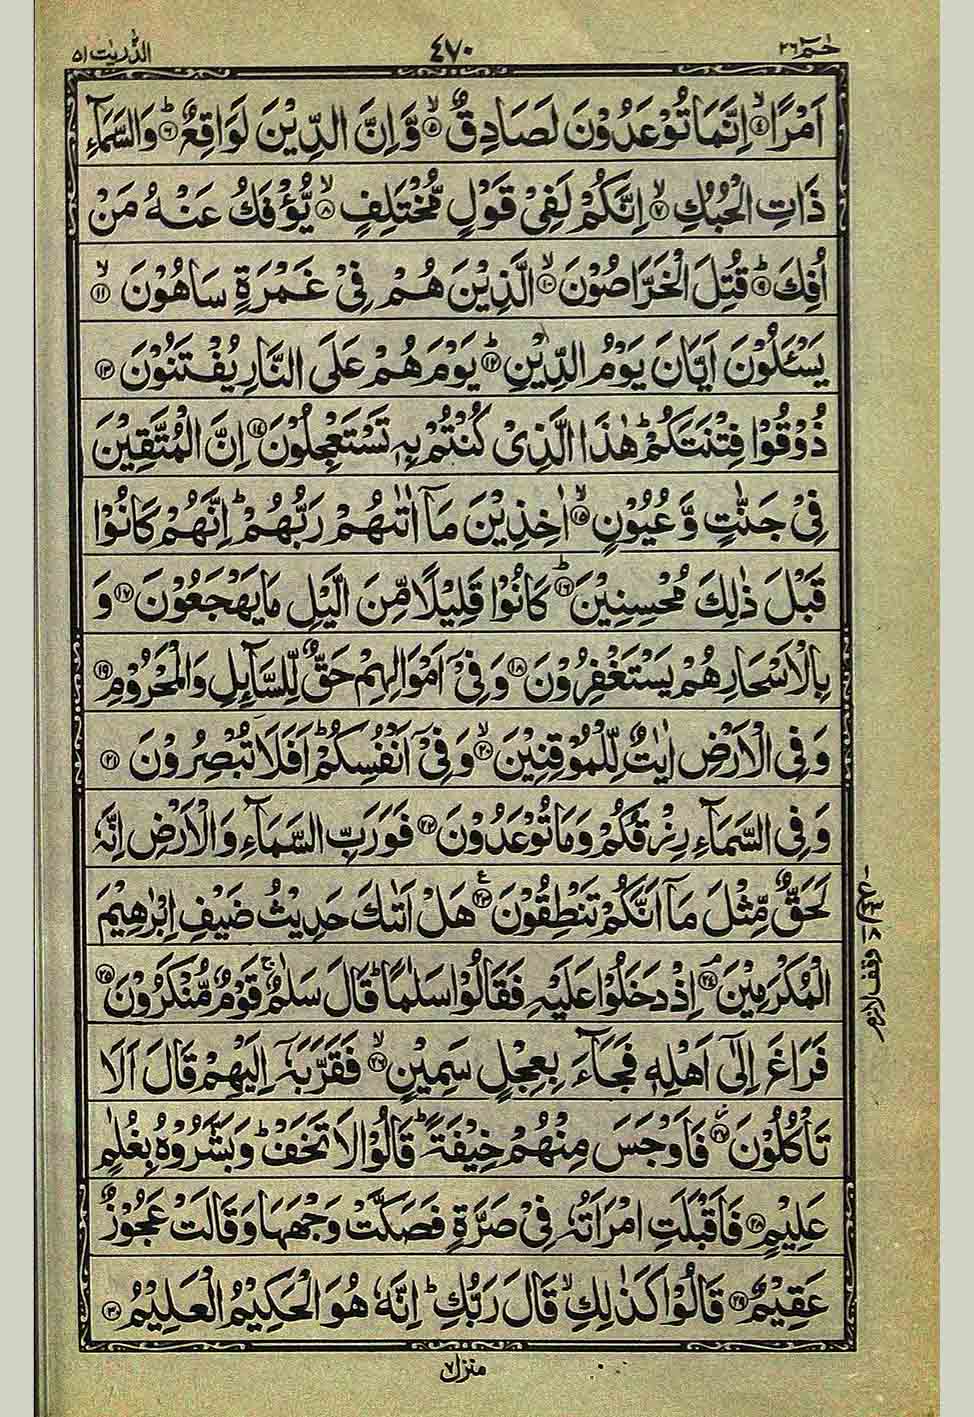 حٰمٓ ٢٦ ٤٧٠ الذّٰریٰت ٥١
اَمْرًا ۙ﴿۴﴾ اِنَّمَا تُوْعَدُوْنَ لَصَادِقٌ ۙ﴿۵﴾ وَّاِنَّ الدِّیْنَ لَوَاقِعٌ ؕ﴿۶﴾ وَالسَّمَآءِ
ذَاتِ الْحُبُكِ ۙ﴿۷﴾ اِنَّكُمْ لَفِیْ قَوْلٍ مُّخْتَلِفٍ ۙ﴿۸﴾ یُّؤْفَكُ عَنْهُ مَنْ
اُفِكَ ؕ﴿۹﴾ قُتِلَ الْخَرّٰصُوْنَ ۙ﴿۱۰﴾ الَّذِیْنَ هُمْ فِیْ غَمْرَةٍ سَاهُوْنَ ۙ﴿۱۱﴾
یَسْـَٔلُوْنَ اَیَّانَ یَوْمُ الدِّیْنِ ؕ﴿۱۲﴾ یَوْمَ هُمْ عَلَی النَّارِ یُفْتَنُوْنَ ﴿۱۳﴾
ذُوْقُوْا فِتْنَتَكُمْ ؕ هٰذَا الَّذِیْ كُنْتُمْ بِهٖ تَسْتَعْجِلُوْنَ ﴿۱۴﴾ اِنَّ الْمُتَّقِیْنَ
فِیْ جَنّٰتٍ وَّعُیُوْنٍ ۙ﴿۱۵﴾ اٰخِذِیْنَ مَاۤ اٰتٰىهُمْ رَبُّهُمْ ؕ اِنَّهُمْ كَانُوْا
قَبْلَ ذٰلِكَ مُحْسِنِیْنَ ؕ﴿۱۶﴾ كَانُوْا قَلِیْلًا مِّنَ الَّیْلِ مَا یَهْجَعُوْنَ ﴿۱۷﴾ وَ
بِالْاَسْحَارِ هُمْ یَسْتَغْفِرُوْنَ ﴿۱۸﴾ وَفِیْۤ اَمْوَالِهِمْ حَقٌّ لِّلسَّآىِٕلِ وَالْمَحْرُوْمِ ﴿۱۹﴾
وَفِی الْاَرْضِ اٰیٰتٌ لِّلْمُوْقِنِیْنَ ۙ﴿۲۰﴾ وَفِیْۤ اَنْفُسِكُمْ ؕ اَفَلَا تُبْصِرُوْنَ ﴿۲۱﴾
وَفِی السَّمَآءِ رِزْقُكُمْ وَمَا تُوْعَدُوْنَ ﴿۲۲﴾ فَوَرَبِّ السَّمَآءِ وَالْاَرْضِ اِنَّهٗ
لَحَقٌّ مِّثْلَ مَاۤ اَنَّكُمْ تَنْطِقُوْنَ ﴿۲۳﴾ هَلْ اَتٰىكَ حَدِیْثُ ضَیْفِ اِبْرٰهِیْمَ
الْمُكْرَمِیْنَ ۘ﴿۲۴﴾ اِذْ دَخَلُوْا عَلَیْهِ فَقَالُوْا سَلٰمًا ؕ قَالَ سَلٰمٌ ۚ قَوْمٌ مُّنْكَرُوْنَ ﴿۲۵﴾
فَرَاغَ اِلٰۤی اَهْلِهٖ فَجَآءَ بِعِجْلٍ سَمِیْنٍ ۙ﴿۲۶﴾ فَقَرَّبَهٗۤ اِلَیْهِمْ قَالَ اَلَا
تَاْكُلُوْنَ ؗ﴿۲۷﴾ فَاَوْجَسَ مِنْهُمْ خِیْفَةً ؕ قَالُوْا لَا تَخَفْ ؕ وَبَشَّرُوْهُ بِغُلٰمٍ
عَلِیْمٍ ﴿۲۸﴾ فَاَقْبَلَتِ امْرَاَتُهٗ فِیْ صَرَّةٍ فَصَكَّتْ وَجْهَهَا وَقَالَتْ عَجُوْزٌ
عَقِیْمٌ ﴿۲۹﴾ قَالُوْا كَذٰلِكِ ۙ قَالَ رَبُّكِ ؕ اِنَّهٗ هُوَ الْحَكِیْمُ الْعَلِیْمُ ﴿۳۰﴾
وقف لازم
منزل ٧